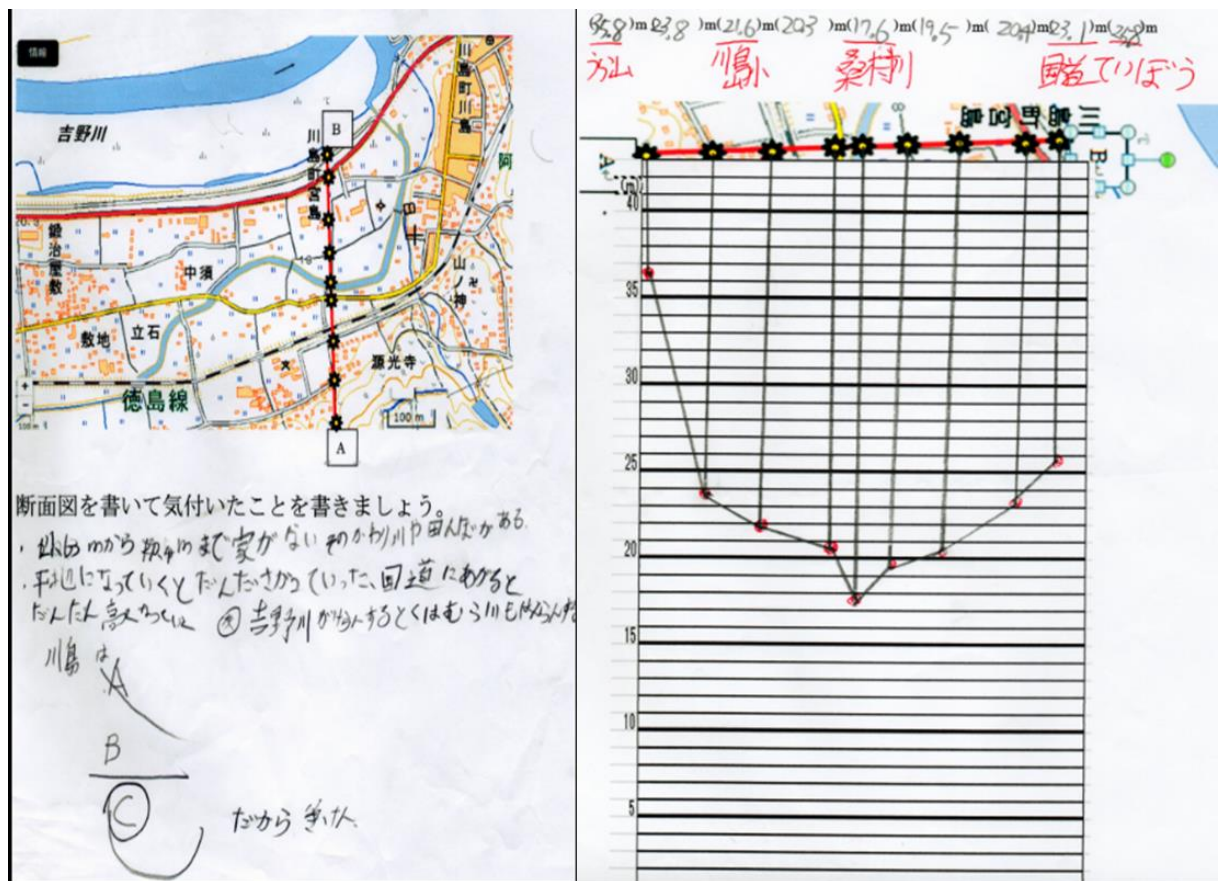 情報
吉野川
川島町川島
B
川島町宮島
阿
鍛冶屋敷
中須
18
山ノ神
敷地
立石
源光寺
徳島線
100 m
100 m
A
断面図を書いて気付いたことを書きましょう。
mから mまで家がない そのかわり川や田んぼがある
になっていくとだんだんさがっていった、国道にあがると
だんだん高く
吉野川がはんらんするとくはむら川もはんらんする
川島は
A
B
C
だから きけん
(35.8)m(23.8)m(21.6)m(20.3)m(17.6)m(19.5)m(20.4)m(23.1)m(25.8)m
川島小 桑村川 国道 ていぼう
A
B
(m)
40
35
30
25
20
15
10
5